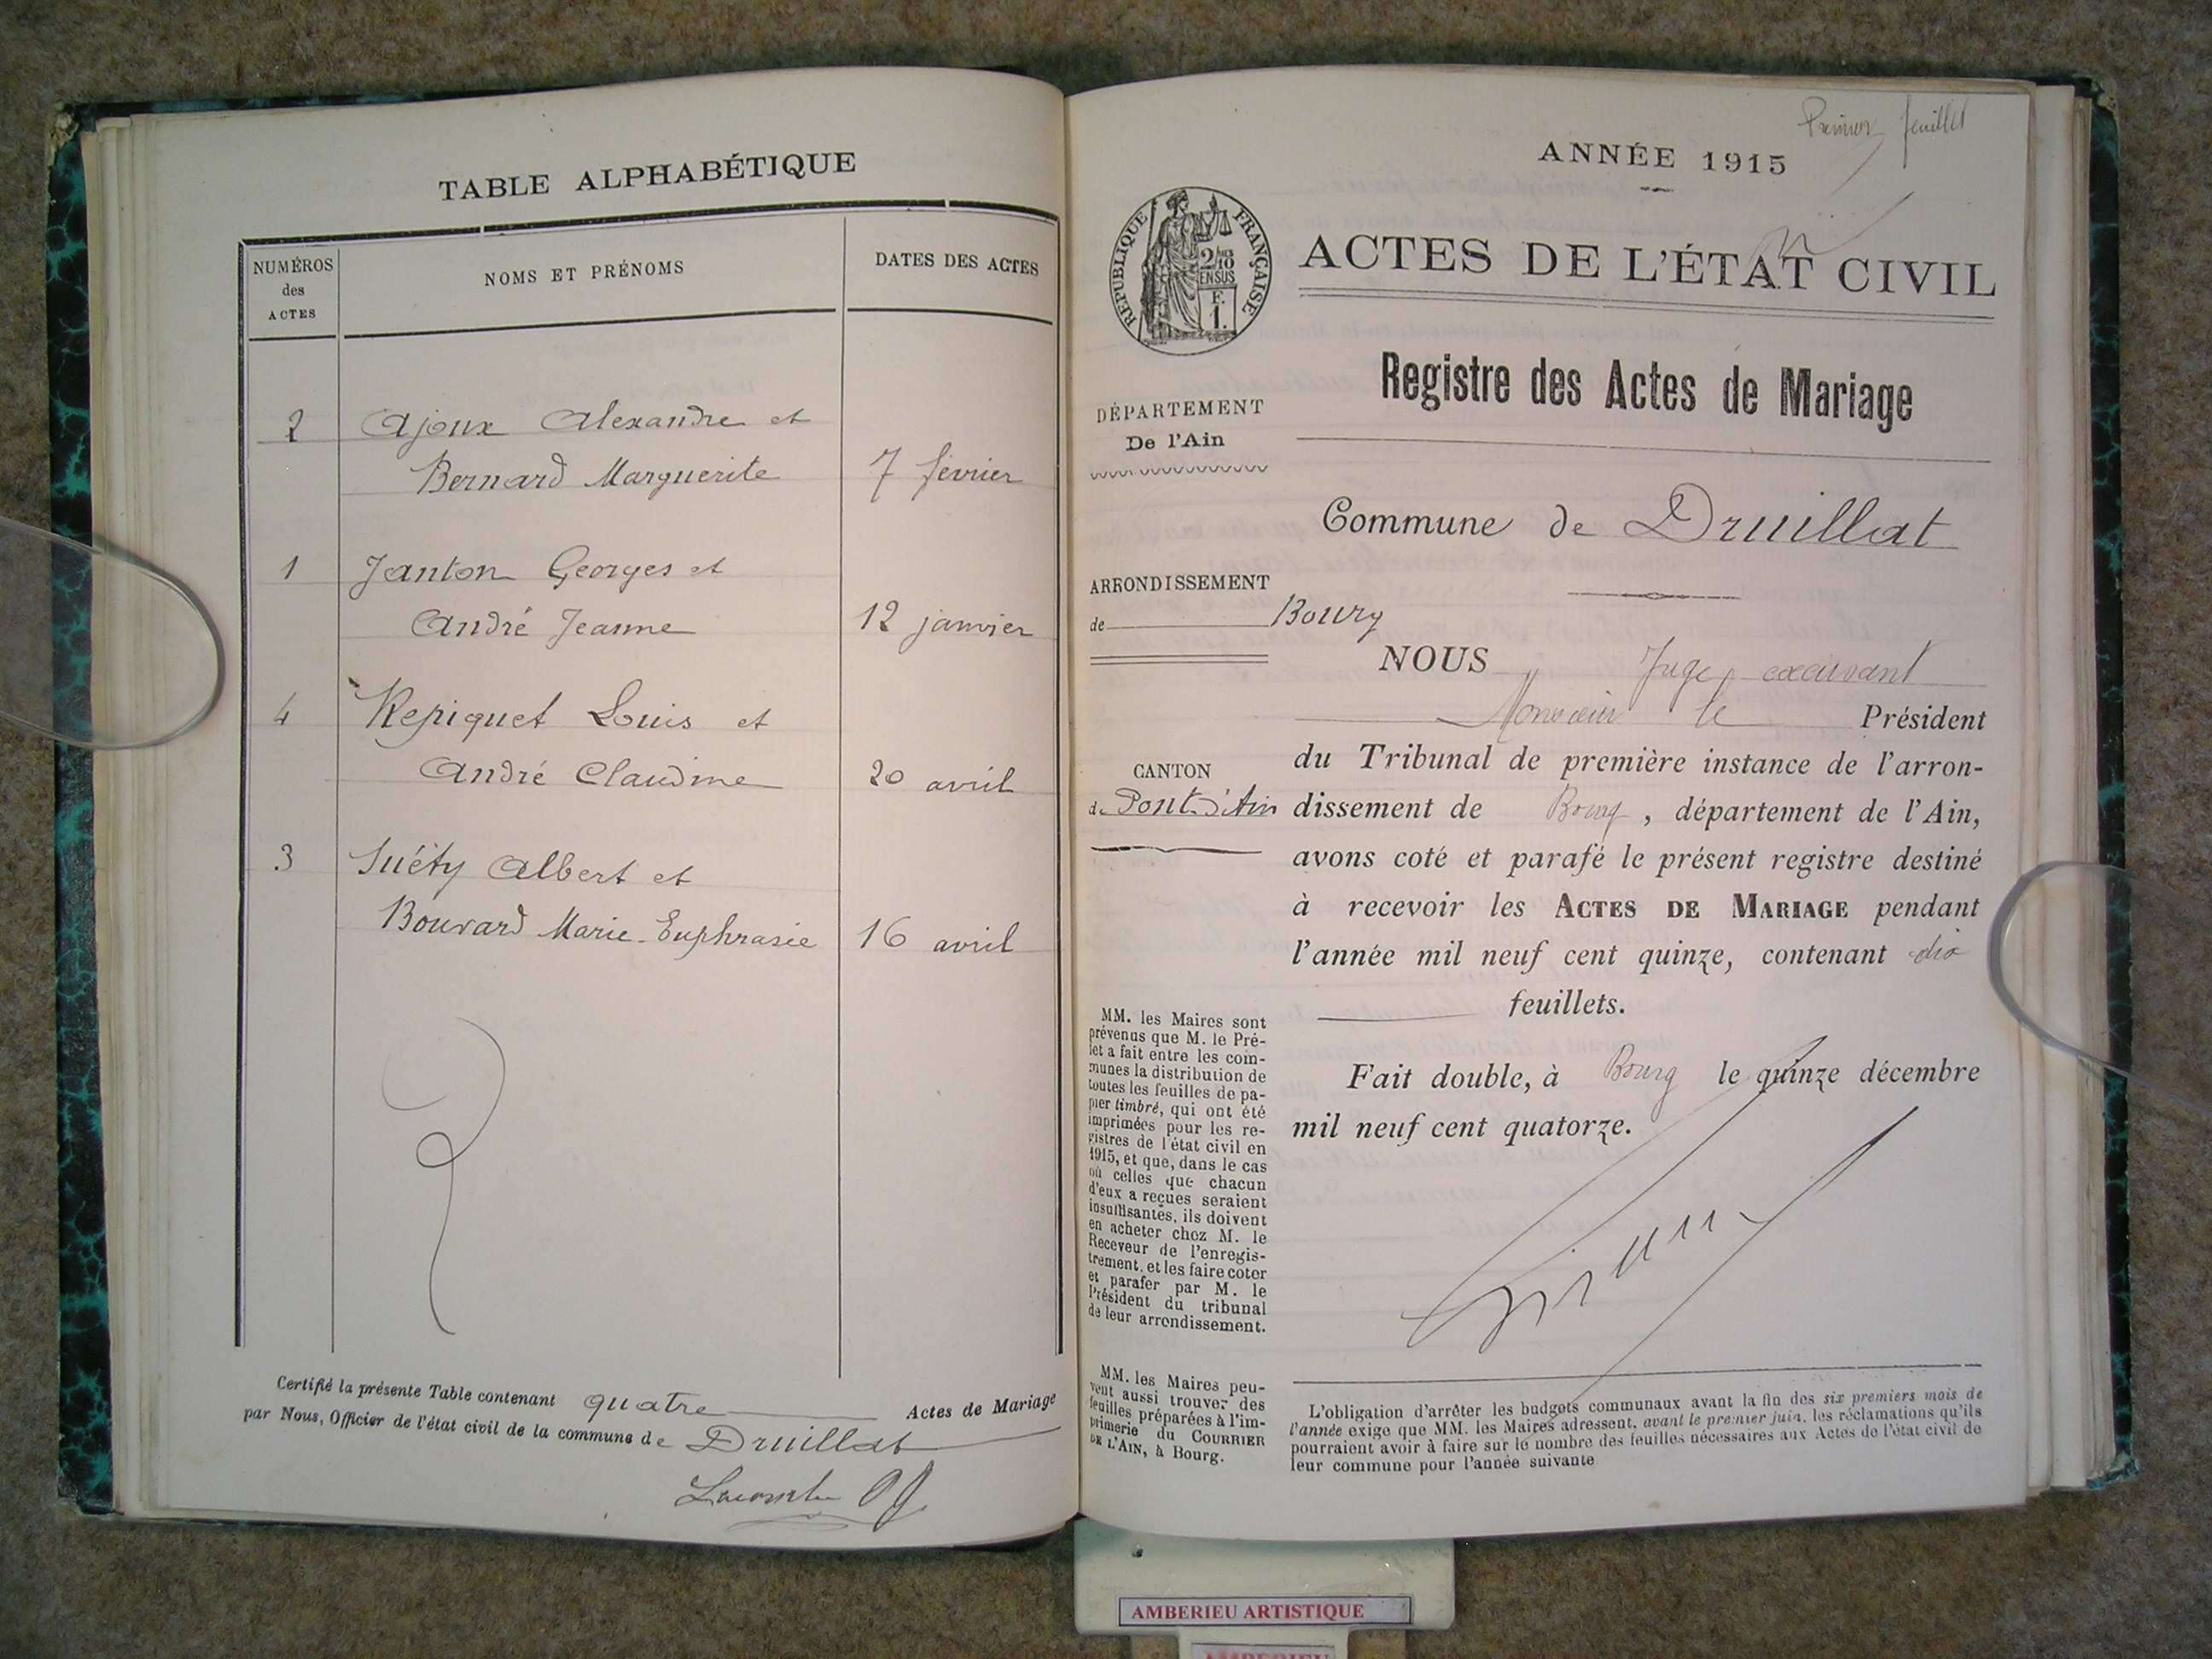 TABLE ALPHABÉTIQUE
NUMÉROS
des
ACTES
NOMS ET PRÉNOMS
DATES DES ACTES
2 Ajoux Alexandre et
Bernard Marguerite 7 février
1 Janton Georges et
André Jeanne 12 janvier
4 Repiquet Louis et
André Claudine 20 avril
3 Suéty Albert et
Bouvard Marie-Euphrasie 16 avril
Certifié la présente Table contenant quatre Actes de Mariage
par Nous, Officier de l'état civil de la commune de Druillat
Premier feuillet
ANNÉE 1915
RÉPUBLIQUE FRANÇAISE
ACTES DE L'ÉTAT CIVIL
Registre des Actes de Mariage
DÉPARTEMENT
De l'Ain
Commune de Druillat
ARRONDISSEMENT
de Bourg
CANTON
de Pont-d'Ain
NOUS Juge,
Monsieur le Président
du Tribunal de première instance de l'arron-
dissement de Bourg, département de l'Ain,
avons coté et parafé le présent registre destiné
à recevoir les ACTES DE MARIAGE pendant
l'année mil neuf cent quinze, contenant dix
feuillets.
Fait double, à Bourg le quinze décembre
mil neuf cent quatorze.
MM. les Maires sont
prévenus que M. le Pré-
fet a fait entre les com-
munes la distribution de
toutes les feuilles de pa-
pier timbré, qui ont été
imprimées pour les re-
gistres de l'état civil en
1915, et que, dans le cas
où celles que chacun
d'eux a reçues seraient
insuffisantes, ils doivent
en acheter chez M. le
Receveur de l'enregis-
trement, et les faire coter
et parafer par M. le
Président du tribunal
de leur arrondissement.
MM. les Maires peu-
vent aussi trouver des
feuilles préparées à l'im-
primerie du COURRIER
DE L'AIN, à Bourg.
L'obligation d'arrêter les budgets communaux avant la fin des six premiers mois de
l'année exige que MM. les Maires adressent, avant le premier juin, les réclamations qu'ils
pourraient avoir à faire sur le nombre des feuilles nécessaires aux Actes de l'état civil de
leur commune pour l'année suivante
AMBERIEU ARTISTIQUE
AMBERIEU